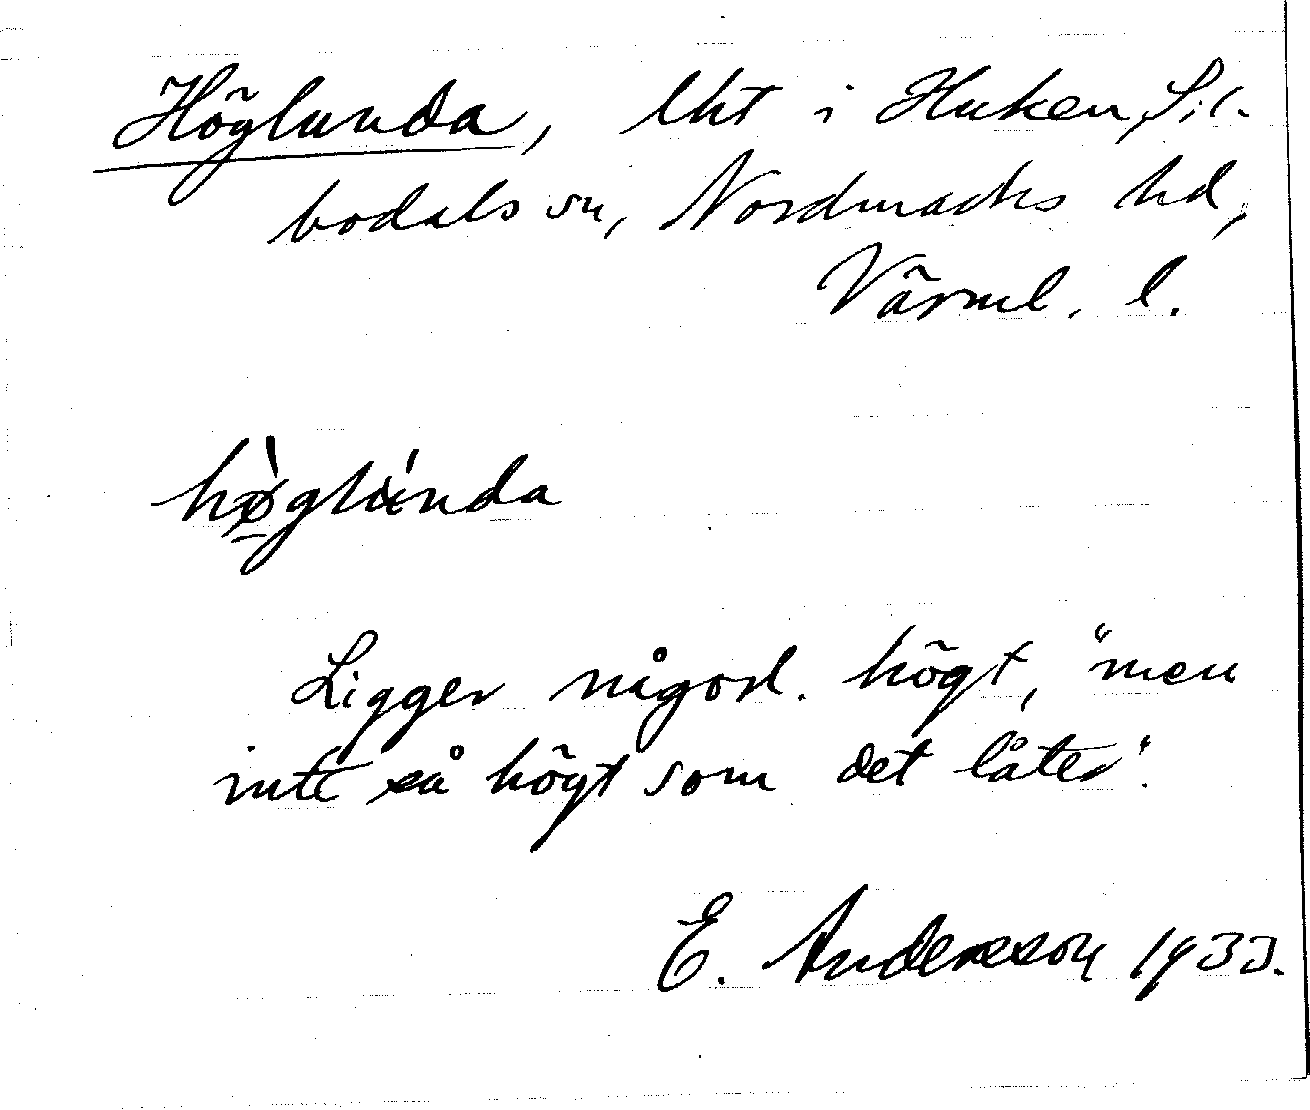 Höglunda, lht i Huken, Sil-
bodals sn, Nordmarks hd,
Värml. l.
hø̀glúnda
Ligger någorl. högt, "men
inte så högt som det låter".
E. Andersson 1933.